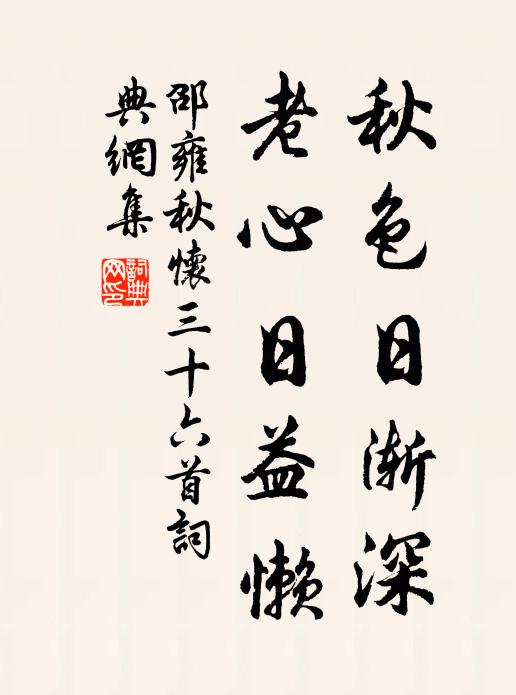 秋色日漸深
老心日益懶
邵雍秋懷三十六首詞
典網集
詞典
网印